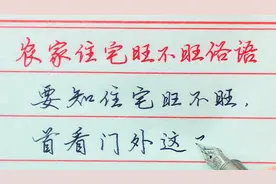 农家住宅旺不旺俗语
要知住宅旺不旺，
首看门外这